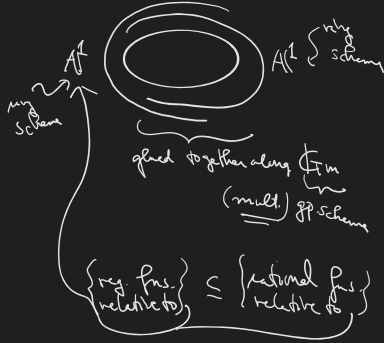 A¹
A¹ { ring scheme
ring scheme
glued together along 𝔾m
(mult.) gp scheme
{reg. fns. relative to} ⊆ {rational fns. relative to}